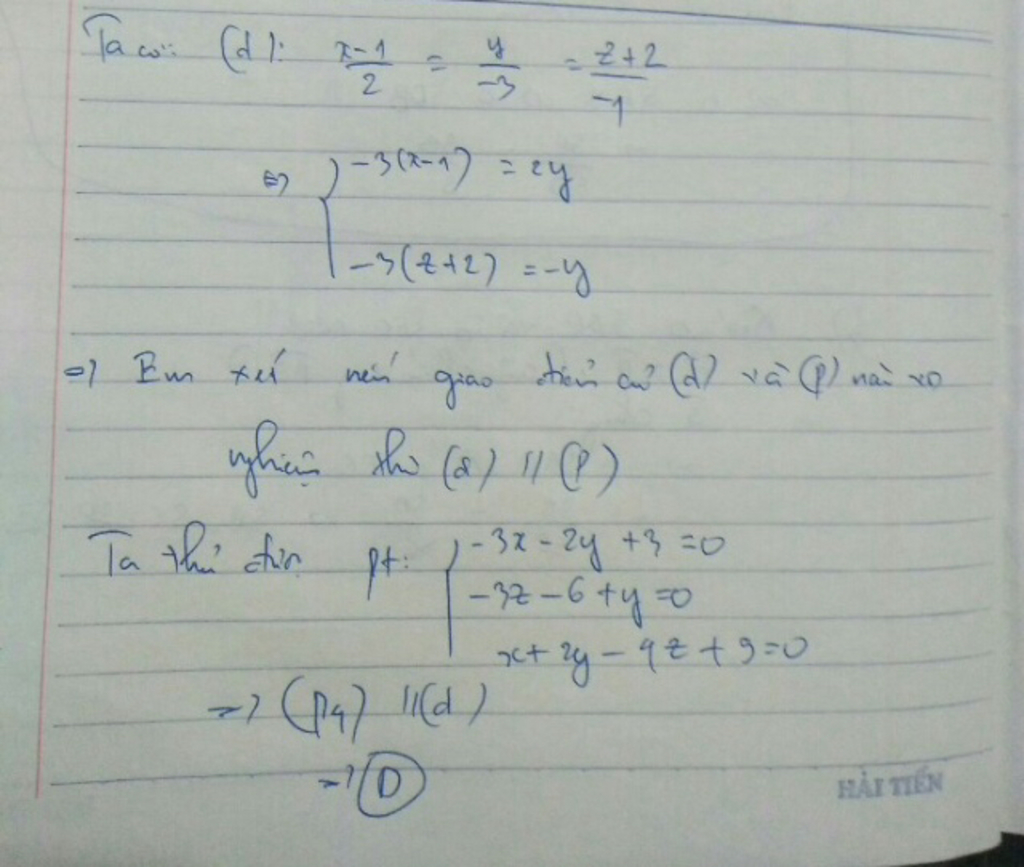 Ta có: (d): \frac{x-1}{2} = \frac{y}{-3} = \frac{z+2}{-1}
⇔ { -3(x-1) = 2y
-3(z+2) = -y
=> Em xét nếu giao điểm củ (d) và (P) nào vô
nghiệm thì (d) // (P)
Ta thấy pt: { -3x - 2y + 3 = 0
-3z - 6 + y = 0
x + 2y - 4z + 9 = 0
=> (P4) // (d)
=> D
HẢI TIẾN